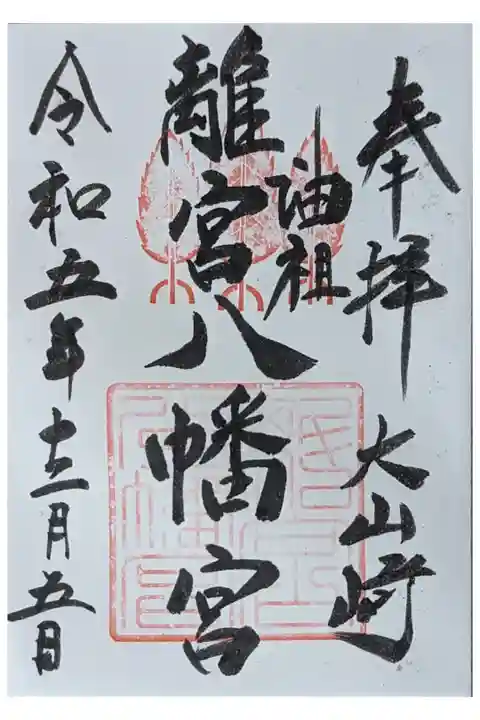 奉拝 大山崎
油祖
離宮八幡宮
令和五年十二月五日